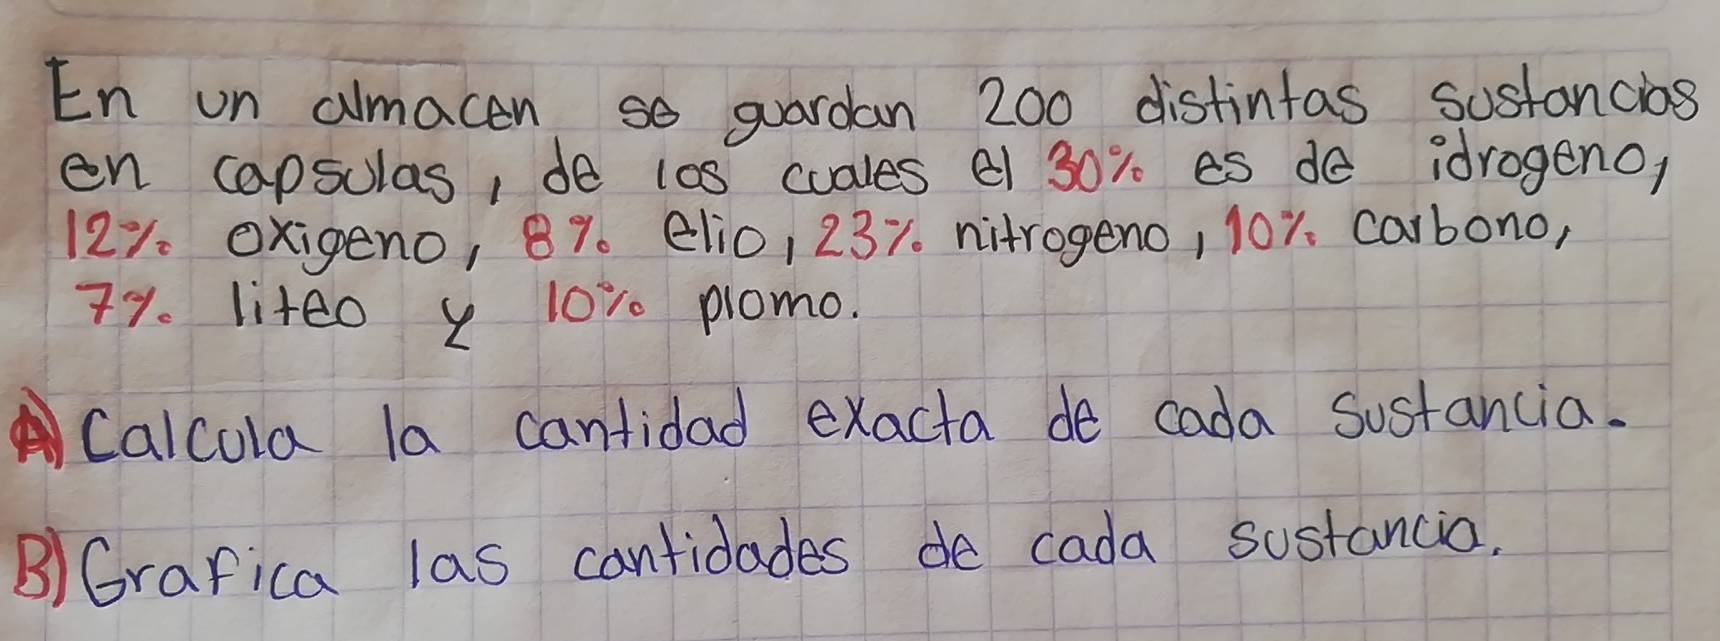 En un almacen se guardan 200 distintas sustancias
en capsulas, de los cuales el 30% es de idrogeno,
12% oxigeno, 8% elio, 23% nitrogeno, 10% carbono,
7% liteo y 10% plomo.
A) Calcula la cantidad exacta de cada sustancia.
B) Grafica las cantidades de cada sustancia.